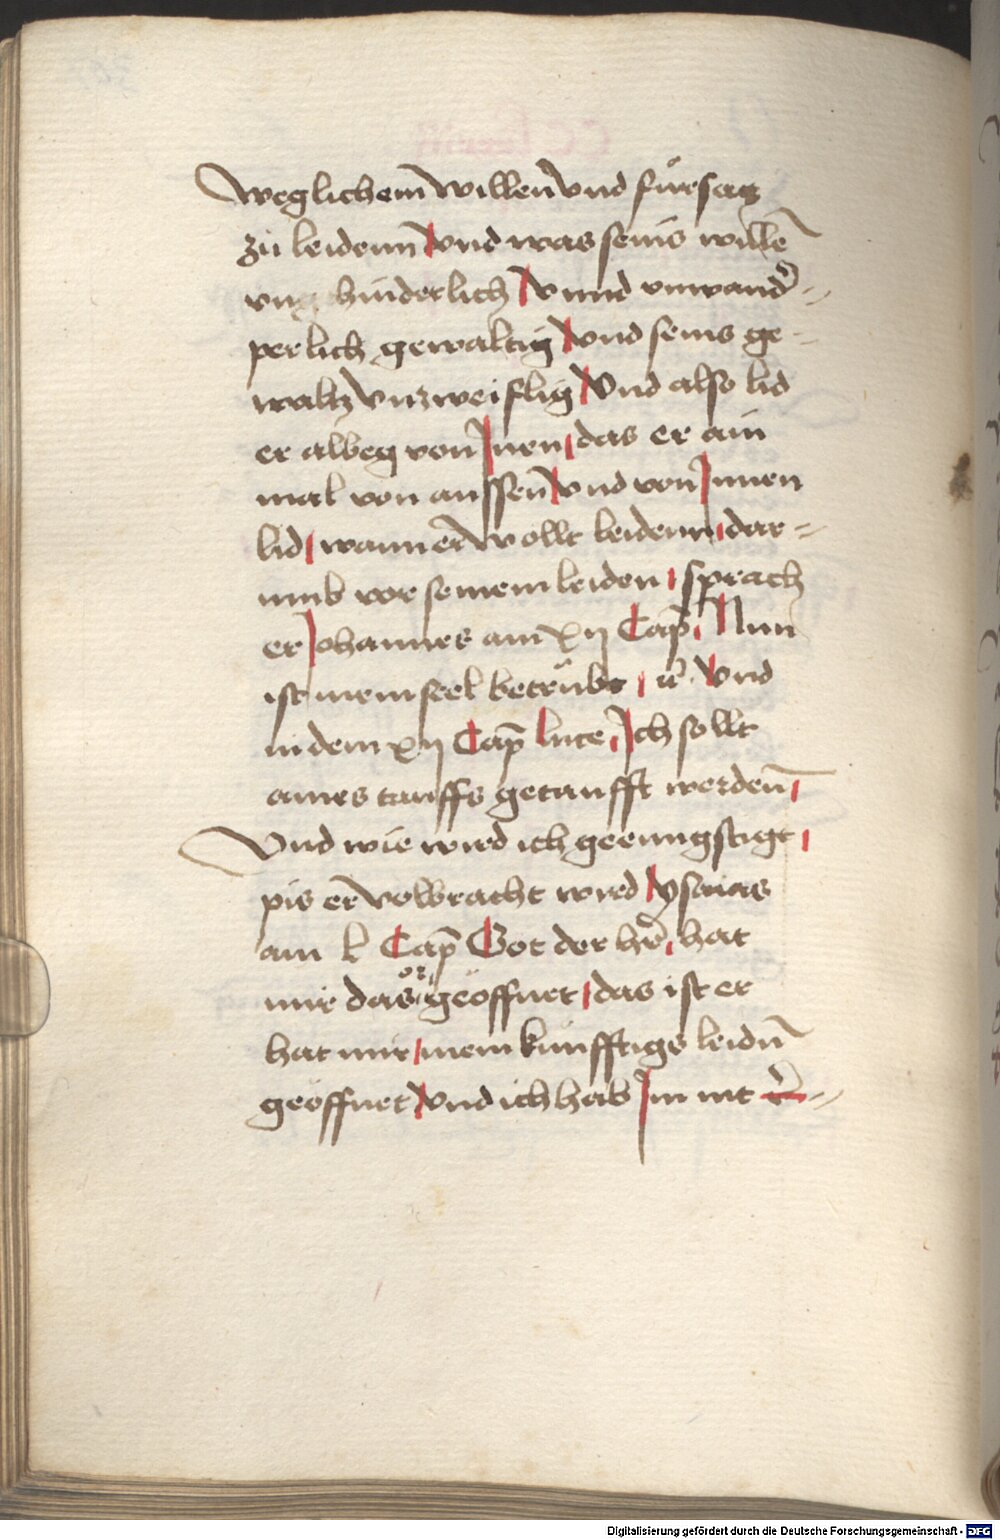 weglichem willen vnd fürsatz
zu leidenn vnd was seins willē
vn hinderlich Vnnd vnwand᷑=
perlich gewaltig vnd seins ge=
waltz vnzweiflig Vnd also lid
er alweg von Jnen, das er ain
mal von aussen vnd von Jnnen
lid, wann er wollt leidenn, dar=
umb vor seinem leiden, sprach
er Johannes am xij Cap̄, Nun
ist mein seel betrübt, Vnd
in dem xij Cap̄ luce, Jch sollt
aines tauffs getaufft werden̄,
Vnd wie wird ich geenngstigt,
pis er volbracht wird ysaias
am l Cap̄ Got der her̄, hat
mir das or geöffnet, das ist er
hat mir, mein künfftigs leidn̄
geöffnet vnd ich hab Jm nit
Digitalisierung gefördert durch die Deutsche Forschungsgemeinschaft - DFG